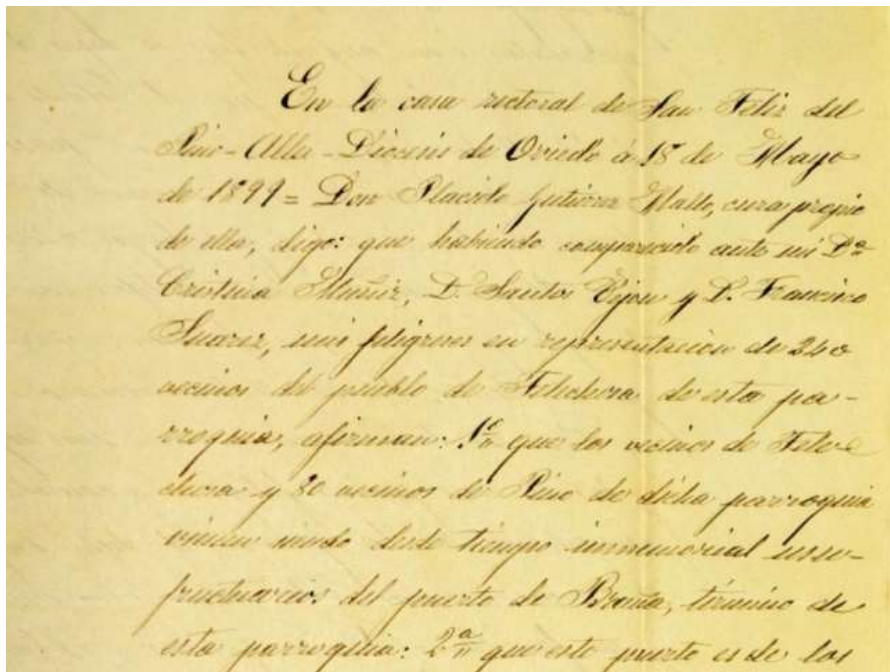 En la casa rectoral de San Feliz del
Pino-Aller-Diócesis de Oviedo á 18 de Mayo
de 1899 = Don Placido Gutierrez Mallo, cura propio
de ella, digo: que habiendo comparecido ante mi Dª
Cristina Muñiz, D. Santos Tijon y D. Francisco
Suarez, mis feligreses en representacion de 240
vecinos del pueblo de Felechosa de esta pa-
rroquia, afirman: 1º que los vecinos de Fele-
chosa y 80 vecinos de Pino de dicha parroquia
vienen siendo desde tiempo inmemorial usu-
fructuarios del puerto de Braña, término de
esta parroquia: 2ª que este puerto es de los